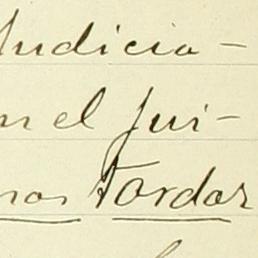 Judicia-
en el jui-
nos Tordos